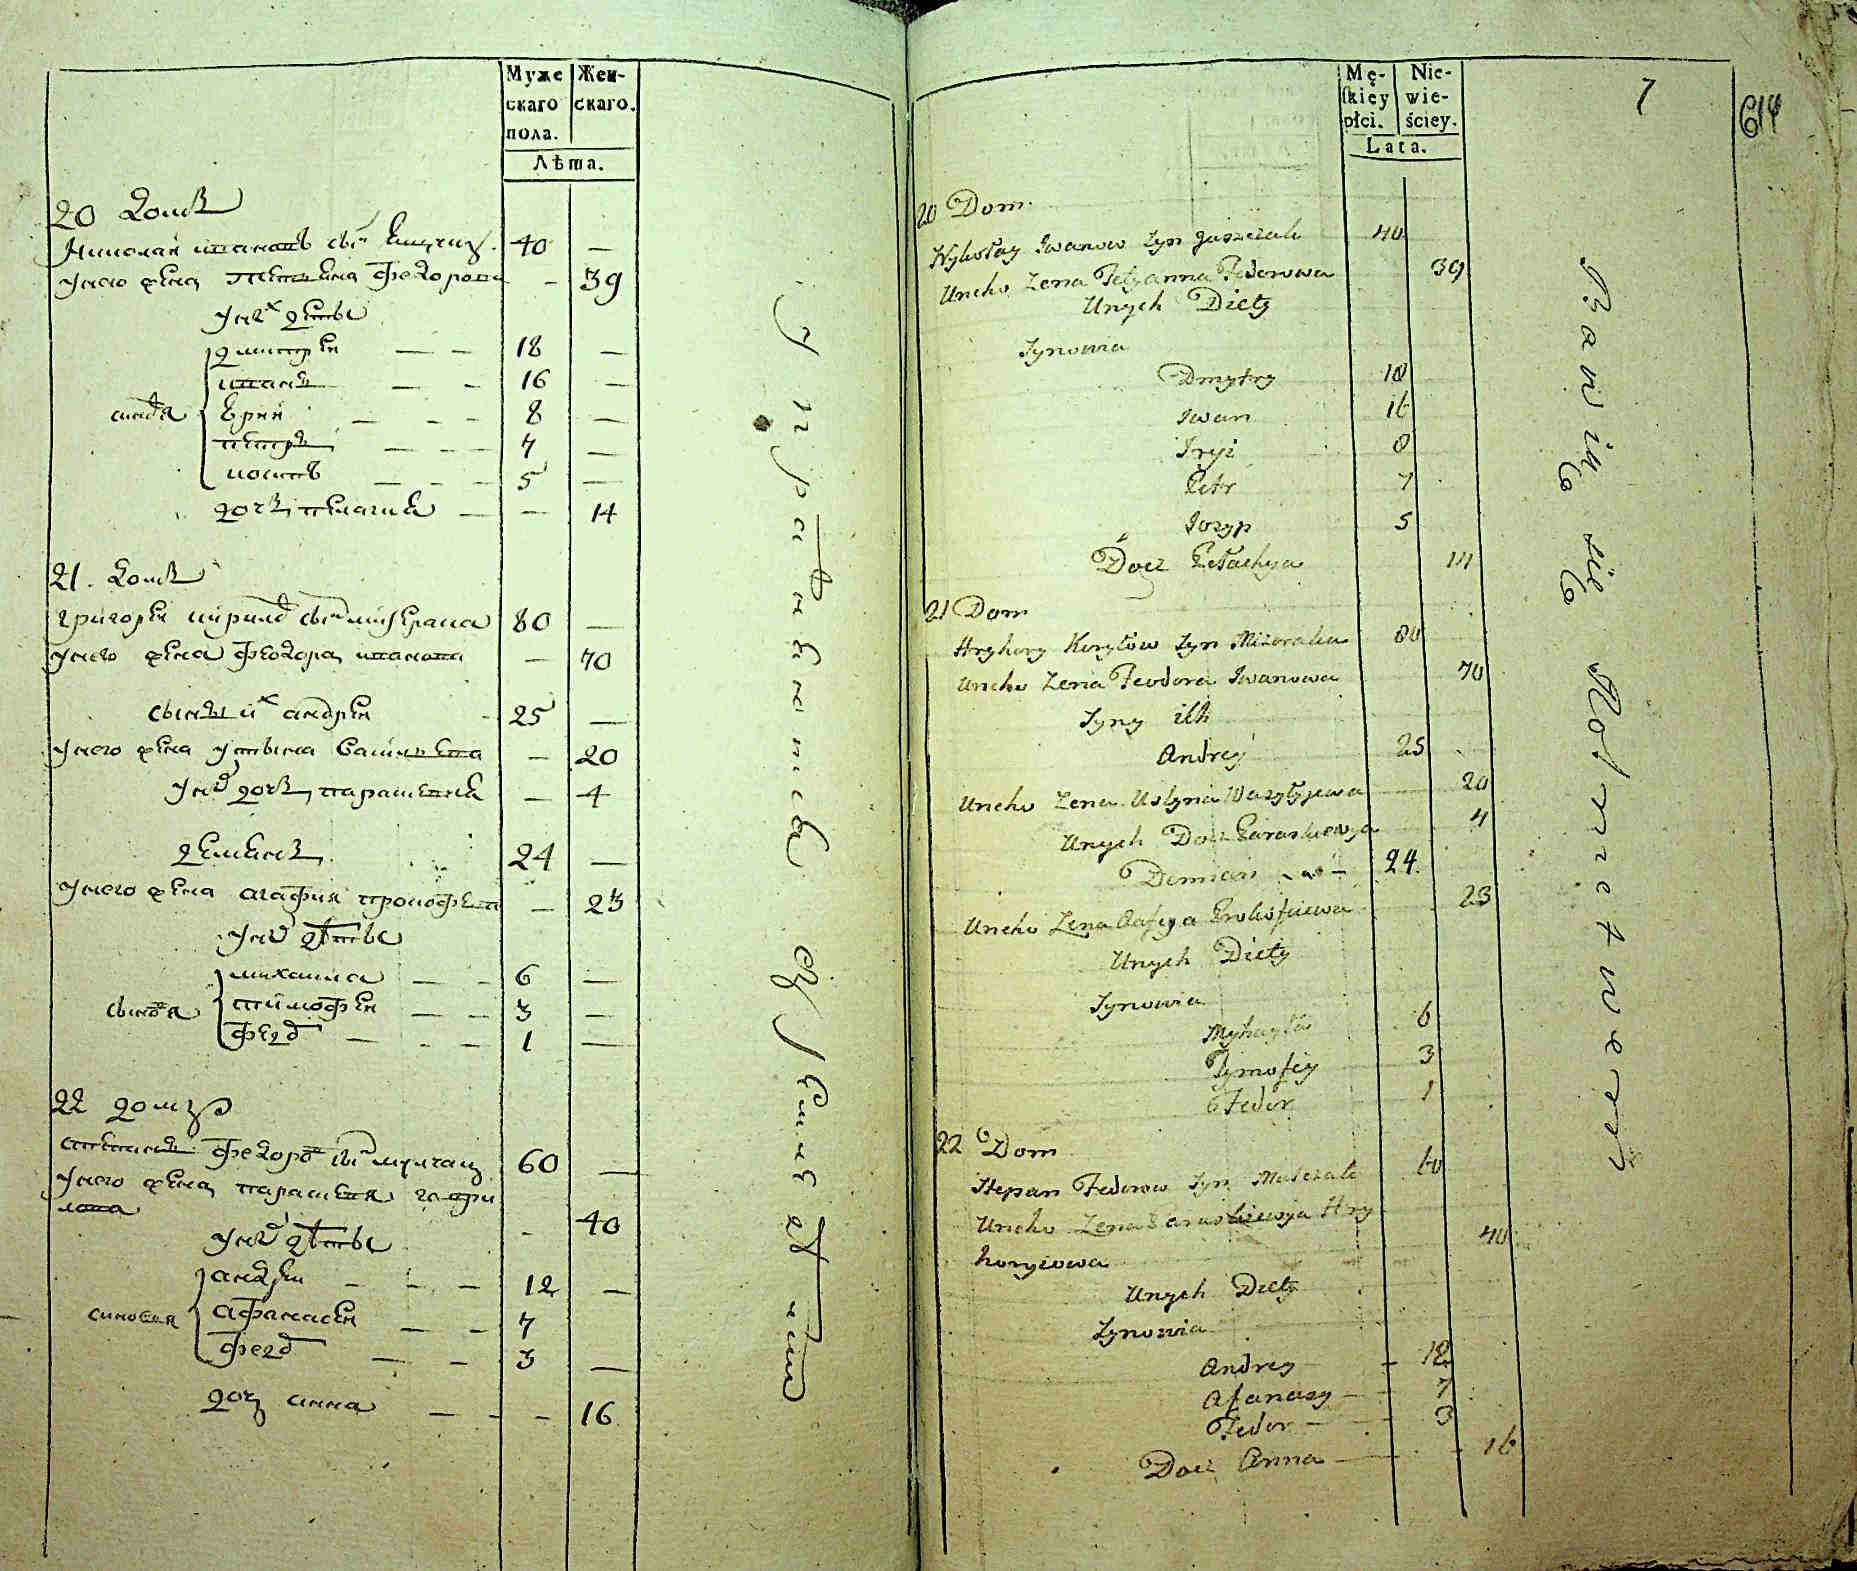 Муже
скаго
пола.
Жен-
скаго.
Лѣта.
20 домъ
Николай Ивановъ сынъ 40 —
у него жена Федорова — 39
у них дети
сыновя
Дмитрей — — 18 —
Иванъ — — 16 —
Юрий — — — 8 —
Петръ — — — 7 —
Иосипъ — — — 5 —
дочъ Пелагия — — 14
21. домъ
Григорей Кирилов сын Мизерака 80 —
у него жена Феодора Иванова — 70
сыны их Андрей - 25 —
у него жена Устына Васильева — 20
у них дочъ Парашкевия — 4
Демьянъ 24 —
у него жена Агафия Прокофева — 23
у них дѣты
сыновя
Михаила — — 6 —
Тимофей — — 3 —
Федор — - — 1 —
22 домъ
Степанъ Федоров сын Мулчак 60 —
у него жена Парашкевя Григо
- 40
у них дѣты
синовя
Андрей — — — 12 —
Афанасей — — 7
Федор — — 3 —
доч Анна — — — 16
Упражняется
Mę-
ſkiey
płci.
Nie-
wie-
ściey.
Lata.
7
614
20 Dom
Mykołay Iwanow Syn 40
Uneho Zena Fedorowa 39
Unych Diety
Synowia
Dmytry 18
Iwan 16
Iryi 8
Petr 7
Iozyp 5
Docz Pełachya 14
21 Dom
Hryhory Kiryłow Syn Mizeraka 80
Uneho Zena Feodora Iwanowa 70
Syny ich
Andrey 25
Uneho Zena Ustyna Wasylyjewa 20
Unych Docz Paraskewya 4
Demian 24
Uneho Zena Prokofiewa 23
Unych Diety
Synowia
Myhayło 6
Tymofiy 3
Fedor 1
22 Dom
Stepan Fedorow Syn Mulczak 60
Uneho Zena Paraskiewya Hry
horyiowa 40
Unych Diety
Synowia
Andrey - 12
Afanazy — - 7
Fedor — 3
Docz Anna — - 16
Bawią się Rolnictwem